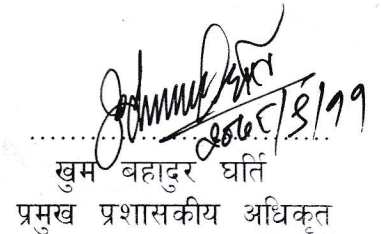 घर्ति
२०७८/९/११
खुम बहादुर घर्ति
प्रमुख प्रशासकीय अधिकृत